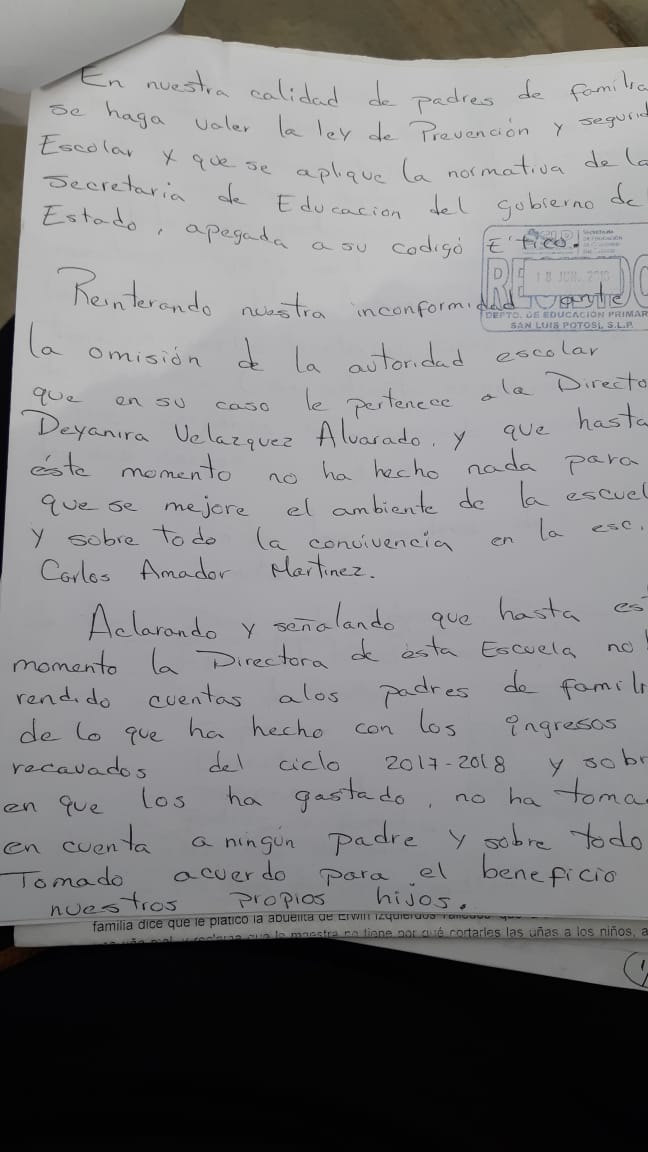 En nuestra calidad de padres de familia
se haga valer la ley de Prevención y segurid
Escolar y que se aplique la normativa de la
Secretaria de Educacion del gobierno de
Estado, apegada a su codigó Etico.
Secretaría
DE EDUCACIÓN
RE
18 JUN. 2018
DO
DEPTO. DE EDUCACIÓN PRIMAR
SAN LUIS POTOSI, S.L.P.
Reinterando nuestra inconformidad ante
la omisión de la autoridad escolar
que en su caso le pertenece a la Directo
Deyanira Velazquez Alvarado, y que hasta
éste momento no ha hecho nada para
que se mejore el ambiente de la escuel
y sobre todo la convivencia en la esc.
Carlos Amador Martinez.
Aclarando y señalando que hasta es
momento la Directora de ésta Escuela no
rendido cuentas alos padres de famili
de lo que ha hecho con los ingresos
recavados del ciclo 2017-2018 y sobr
en que los ha gastado, no ha toma
en cuenta a ningún padre y sobre todo
Tomado acuerdo para el beneficio
nuestros propios hijos.
familia dice que le platicó la abuelita de Erwin Izquierdos
que la maestra no tiene por qué cortarles las uñas a los niños, a